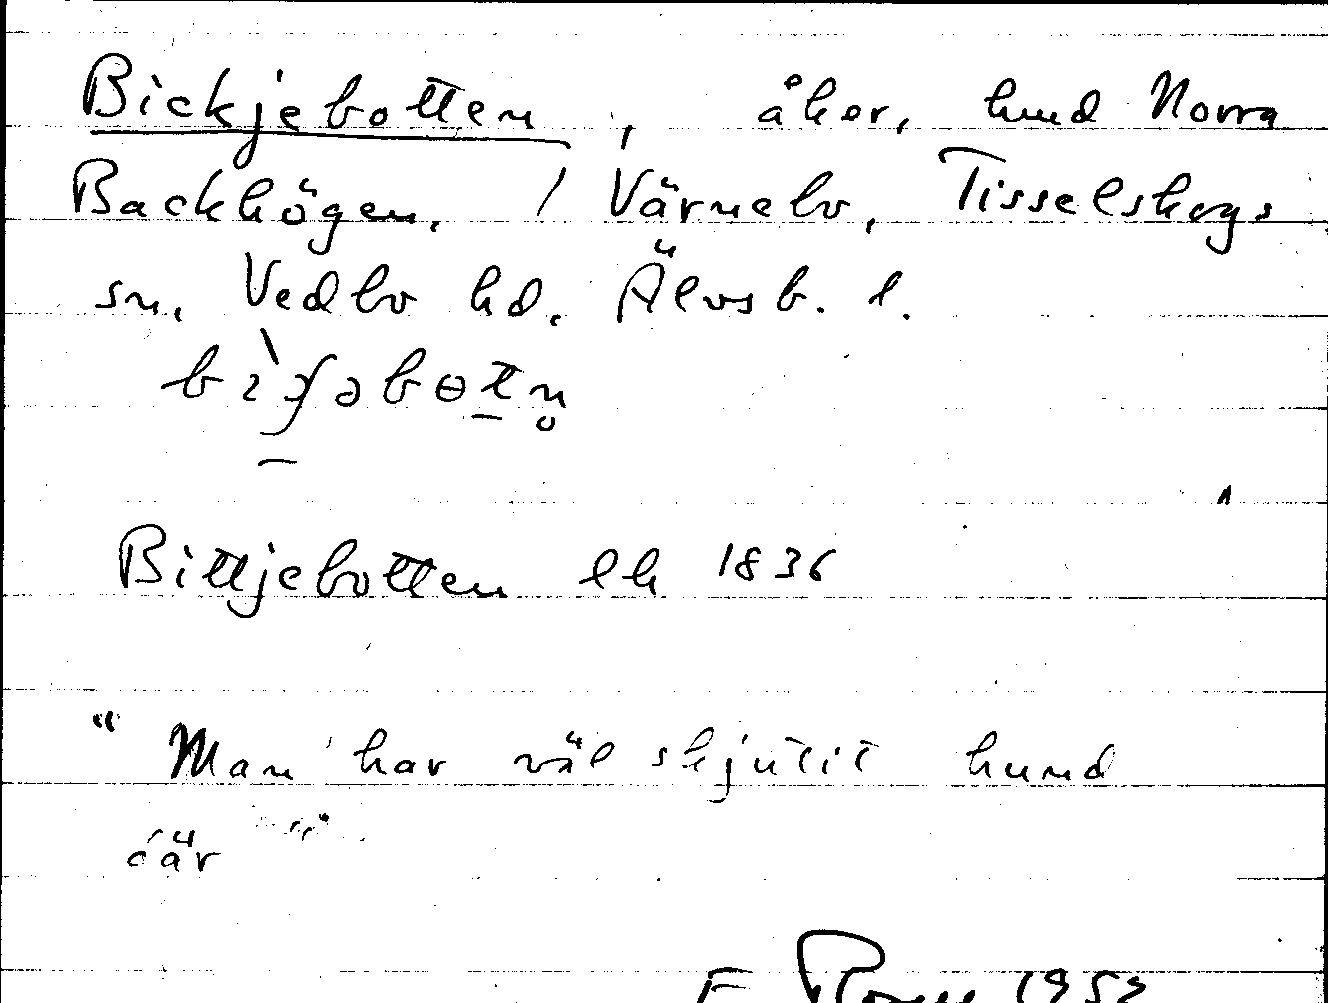 Bickjebotten, åker, hmd Norra
Backhögen, 1 Värnebo, Tisselskogs
sn, Vedbo hd, Älvsb. l.
Bittjebotten lh 1836
"Man har väl skjutit hund
där"
F